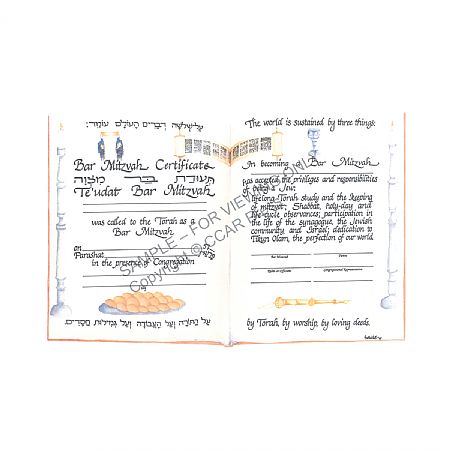 על שלשה דברים העולם עומד:
Bar Mitzvah Certificate
תעודת בר מצוה
Te'udat Bar Mitzvah
was called to the Torah as a
Bar Mitzvah
on
Parashat
in the presence of Congregation
על התורה ועל העבודה ועל גמילות חסדים.
The world is sustained by three things:
In becoming a Bar Mitzvah
was accepted the privileges and responsibilities
of being a Jew:
lifelong Torah study and the keeping
of mitzvot; Shabbat, holy-day and
life-cycle observances; participation in
the life of the synagogue, the Jewish
community and Israel; dedication to
Tikkun Olam, the perfection of our world
by Torah, by worship, by loving deeds.
SAMPLE - FOR VIEWING ONLY
Copyright © CCAR Press